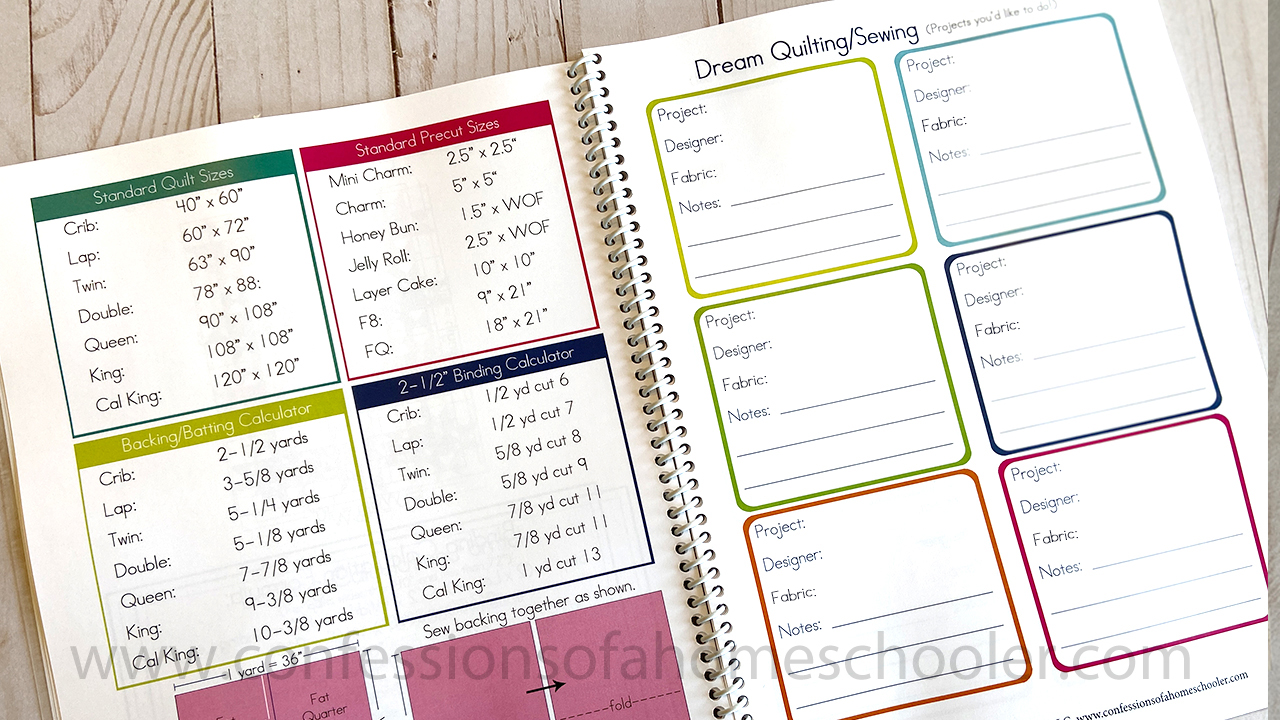 Standard Quilt Sizes
Crib: 40” x 60”
Lap: 60” x 72”
Twin: 63” x 90”
Double: 78” x 88:
Queen: 90” x 108”
King: 108” x 108”
Cal King: 120” x 120”
Standard Precut Sizes
Mini Charm: 2.5” x 2.5“
Charm: 5” x 5“
Honey Bun: 1.5” x WOF
Jelly Roll: 2.5” x WOF
Layer Cake: 10” x 10”
F8: 9” x 21”
FQ: 18” x 21”
Backing/Batting Calculator
Crib: 2-1/2 yards
Lap: 3-5/8 yards
Twin: 5-1/4 yards
Double: 5-1/8 yards
Queen: 7-7/8 yards
King: 9-3/8 yards
Cal King: 10-3/8 yards
2-1/2” Binding Calculator
Crib: 1/2 yd cut 6
Lap: 1/2 yd cut 7
Twin: 5/8 yd cut 8
Double: 5/8 yd cut 9
Queen: 7/8 yd cut 11
King: 7/8 yd cut 11
Cal King: 1 yd cut 13
1 yard = 36”
Fat
Fat
Quarter
Sew backing together as shown.
fold
Dream Quilting/Sewing (Projects you'd like to do!)
Project:
Designer:
Fabric:
Notes:
Project:
Designer:
Fabric:
Notes:
Project:
Designer:
Fabric:
Notes:
Project:
Designer:
Fabric:
Notes:
Project:
Designer:
Fabric:
Notes:
Project:
Designer:
Fabric:
Notes:
www.confessionsofahomeschooler.com
www.confessionsofahomeschooler.com